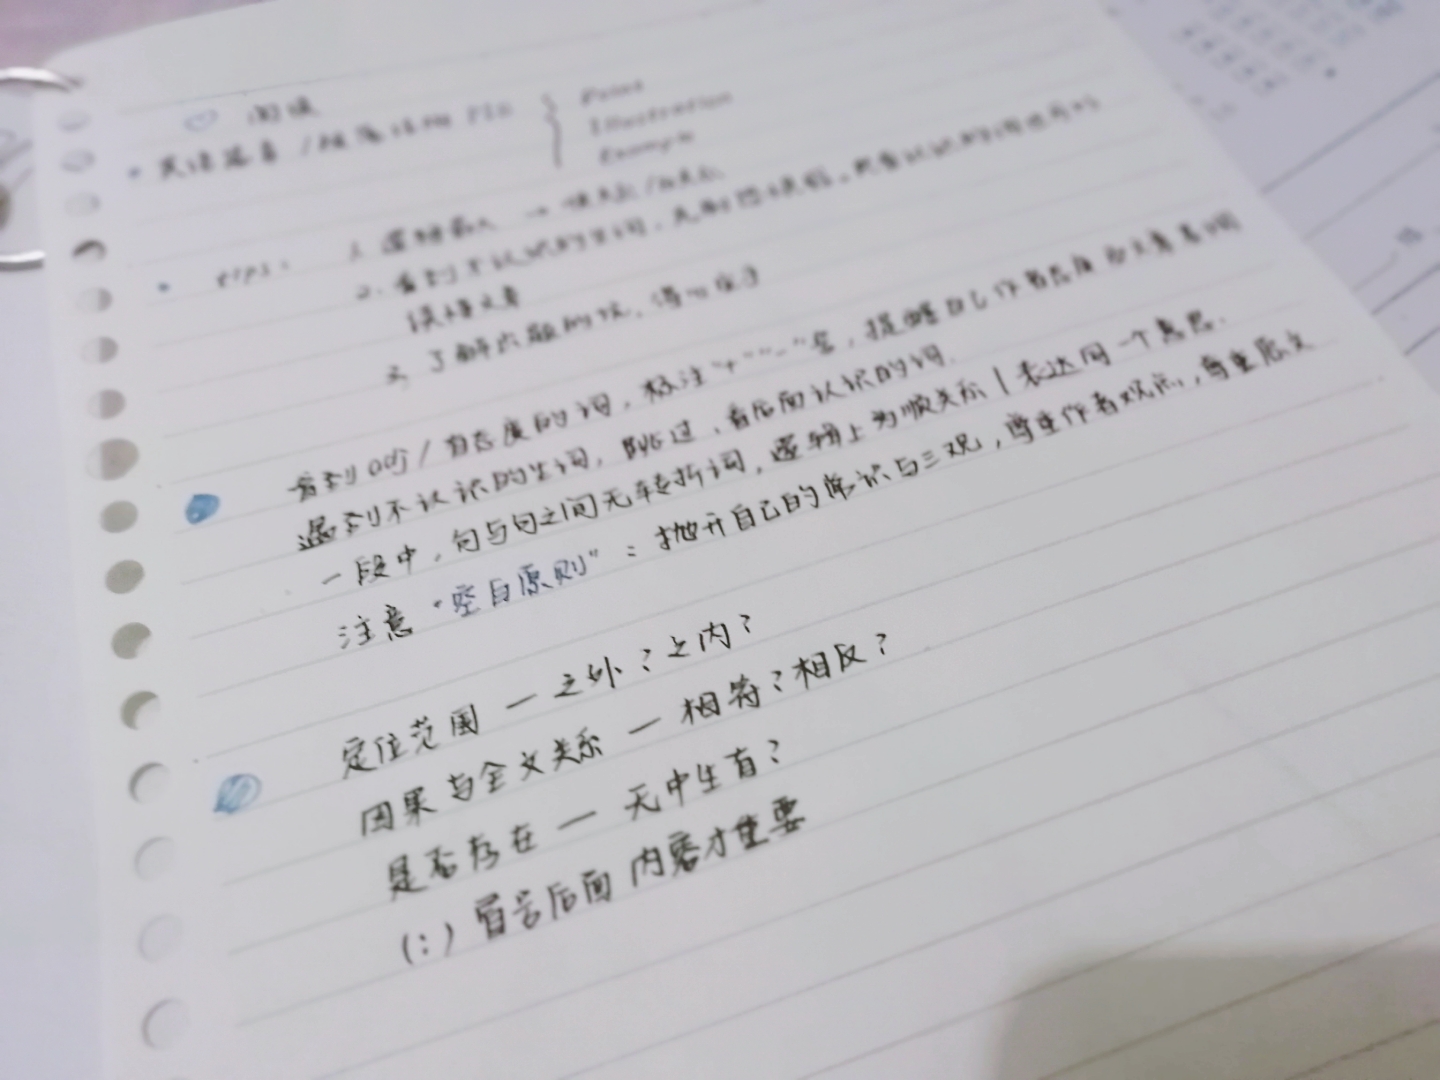 阅读
英语文章/段落结构 PIE { Point
Illustration
Example
tips: 1. 逻辑 →
2. 看到不认识的生词,
读懂文章
3. 了解出题的坑, 得心应手
看到 adj / 有态度的词, 标注"+""-"号, 提醒自己作者态度
遇到不认识的生词, 跳过, 看后面认识的词.
一段中, 句与句之间无转折词, 逻辑上为顺关系 | 表达同一个意思.
注意"空白原则": 抛开自己的常识与三观, 尊重作者观点, 尊重原文
定位范围 — 之外? 之内?
因果与全文关系 — 相符? 相反?
是否存在 — 无中生有?
(:) 冒号后面内容才重要